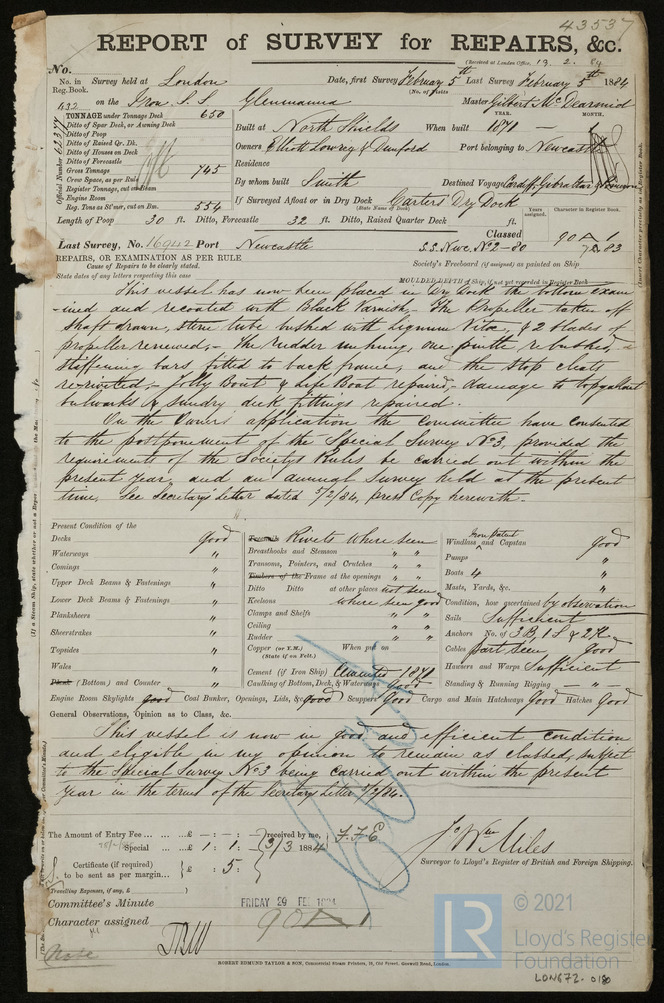 43537
REPORT of SURVEY for REPAIRS, &c.
(Received at London Office, 13. 2. 84
No.
No. in Survey held at London Date, first Survey February 5th Last Survey February 5th 1884
Reg. Book. (No. of Visits
432 on the Iron S.S Master Gilbert
TONNAGE under Tonnage Deck 650
Ditto of Spar Deck, or Awning Deck
Ditto of Poop
Ditto of Raised Qr. Dk.
Ditto of Houses on Deck
Ditto of Forecastle
Gross Tonnage 745
Crew Space, as per Rule
Register Tonnage, cut on Beam
Engine Room
Reg. Tons as St'mer, cut on Bm. 554
Official Number
YEAR. MONTH.
Built at North Shields When built 1871 —
Owners Elliott Lowrey & Dunford Port belonging to Newcastle
Residence
By whom built Smith Destined Voyage Cardiff, Gibraltar &
If Surveyed Afloat or in Dry Dock Carters Dry Dock
(State Name of Dock)
Length of Poop 30 ft. Ditto, Forecastle 32 ft. Ditto, Raised Quarter Deck ft.
Years assigned. Character in Register Book.
Classed 90 A 1
Last Survey, No. 16942 Port Newcastle S.S. Nwc. No 2 - 80 83
REPAIRS, OR EXAMINATION AS PER RULE
Cause of Repairs to be clearly stated.
State dates of any letters respecting this case
Society's Freeboard (if assigned) as painted on Ship
MOULDED DEPTH of Ship, if not yet recorded in Register Book
This vessel has now been placed in Dry Dock the bottom exam
-ined and recoated with Black Varnish,– The Propeller taken off
shaft drawn, stern tube bushed with Lignum Vitæ, & 2 blades of
propeller renewed,– The rudder unhung, one pintle rebushed,
stiffening bars fitted to back frame, and the stop cleats
re-rivited,– Jolly Boat & Life Boat repaired,– damage to topgallant
bulwarks & sundry deck fittings repaired.
On the Owners application the Committee have consented
to the postponement of the Special Survey No3, provided the
requirements of the Societys Rules be carried out within the
present year, and an annual Survey held at the present
time, See Secretary's Letter dated 5/2/84, press Copy herewith.
Present Condition of the
Decks Good
Waterways "
Comings "
Upper Deck Beams & Fastenings "
Lower Deck Beams & Fastenings "
Planksheers "
Sheerstrakes "
Topsides "
Wales "
Plank (Bottom) and Counter "
Treenails Rivets where seen
Breasthooks and Stemson " "
Transoms, Pointers, and Crutches " "
Timbers of the Frame at the openings " "
Ditto Ditto at other places not seen
Keelsons where seen good
Clamps and Shelfs " "
Ceiling " "
Rudder " "
Copper (or Y.M.) When put on
(State if on Felt.)
Cement (if Iron Ship) Cemented 1871
Caulking of Bottom, Deck, & Waterways Good
Iron Patent
Windlass and Capstan Good
Pumps "
Boats 4 "
Masts, Yards, &c. "
Condition, how ascertained by observation
Sails Sufficient
Anchors No. of 3 B, 1 S & 2 K
Cables part seen Good
Hawsers and Warps Sufficient
Standing & Running Rigging "
Engine Room Skylights good Coal Bunker, Openings, Lids, &c. good Scuppers Good Cargo and Main Hatchways Good Hatches Good
General Observations, Opinion as to Class, &c.
This vessel is now in good and efficient condition
and eligible in my opinion to remain as classed, subject
to the Special Survey No3 being carried out within the present
Year in the terms of the Secretarys Letter 5/2/84.
The Amount of Entry Fee ... ... £ – : – :
Special ... £ 1 : 1 : –
received by me,
3/3 1884
Certificate (if required)
to be sent as per margin... £ : 5 :
Travelling Expenses, if any, £
Jo Wm Miles
Surveyor to Lloyd's Register of British and Foreign Shipping.
Committee's Minute FRIDAY 29 FEB 1884
Character assigned 90 A 1
ROBERT EDMUND TAYLOR & SON, Commercial Steam Printers, 19, Old Street, Goswell Road, London.
© 2021
LR
Lloyd's Register
Foundation
LON672-0180